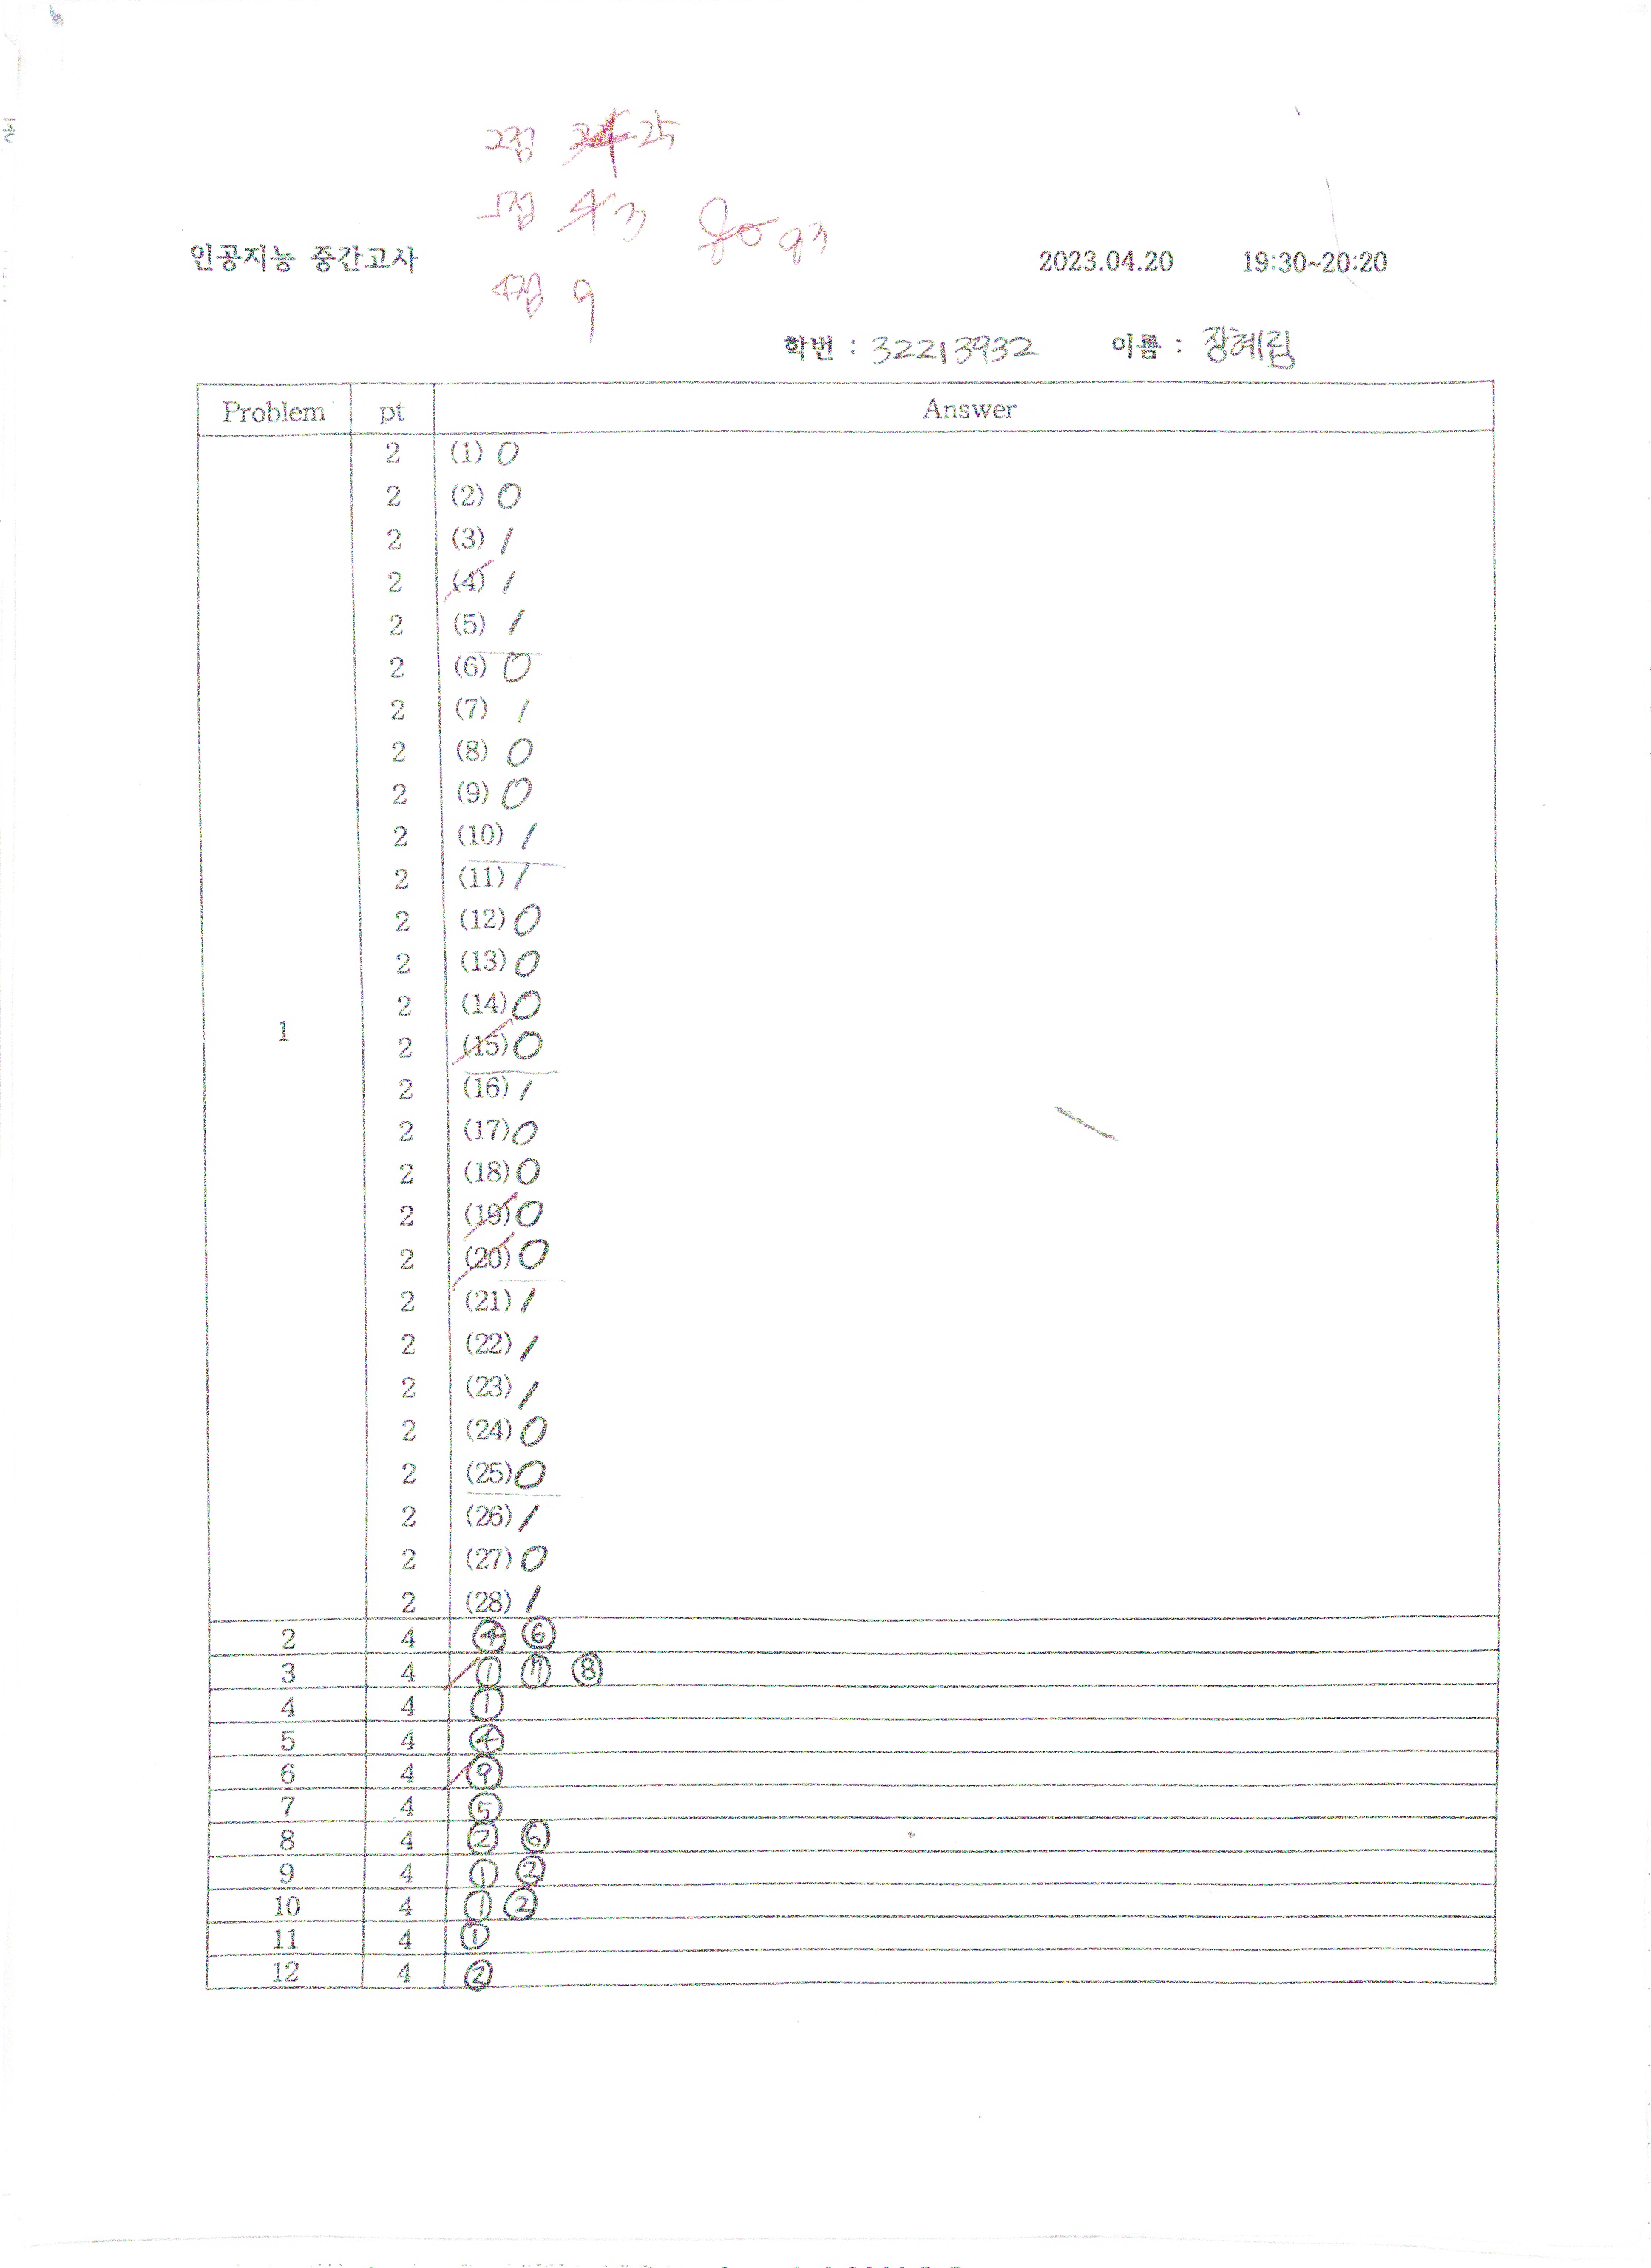 2점 25
3
93
인공지능 중간고사 2023.04.20 19:30~20:20
4점 9
학번 : 32213932 이름 : 장혜림
Problem pt Answer
2 (1) 0
2 (2) 0
2 (3) 1
2 (4) 1
2 (5) 1
2 (6) 0
2 (7) 1
2 (8) 0
2 (9) 0
2 (10) 1
2 (11) 1
2 (12) 0
2 (13) 0
2 (14) 0
1
2 (15) 0
2 (16) 1
2 (17) 0
2 (18) 0
2 (19) 0
2 (20) 0
2 (21) 1
2 (22) 1
2 (23) 1
2 (24) 0
2 (25) 0
2 (26) 1
2 (27) 0
2 (28) 1
2 4 ④ ⑥
3 4 ① ⑦ ⑧
4 4 ①
5 4 ④
6 4 ⑨
7 4 ⑤
8 4 ② ⑥
9 4 ① ②
10 4 ① ②
11 4 ①
12 4 ②